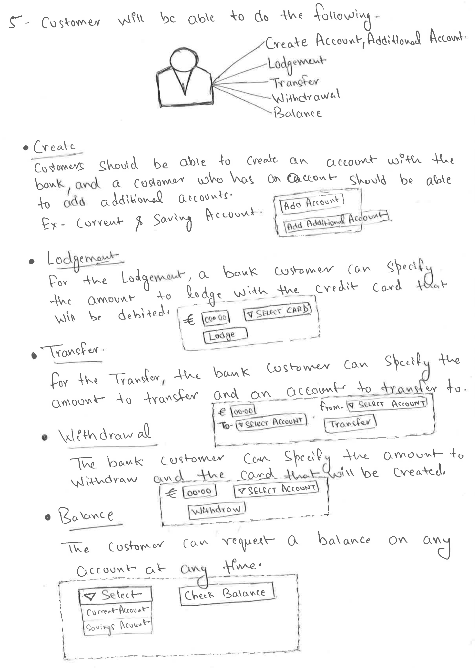 5- Customer will be able to do the following-
Create Account, Additional Account.
Lodgement
Transfer
Withdrawal
Balance
• Create
Customers should be able to create an account with the
bank, and a customer who has an account should be able
to add additional accounts.
Ex- Current & Saving Account.
Add Account
Add Additional Account
• Lodgement
For the Lodgement, a bank customer can specify
the amount to lodge with the credit card that
will be debited.
€ 00.00 ▽ SELECT CARD
Lodge
• Transfer.
For the Transfer, the bank customer can specify the
amount to transfer and an account to transfer to.
€ 00.00 From- ▽ SELECT ACCOUNT
To- ▽ SELECT ACCOUNT . Transfer
• Withdrawal
The bank customer can specify the amount to
withdraw and the card that will be created.
€ 00.00 ▽ SELECT ACCOUNT
Withdraw
• Balance
The customer can request a balance on any
account at any time.
▽ Select Check Balance
Current Account
Savings Account